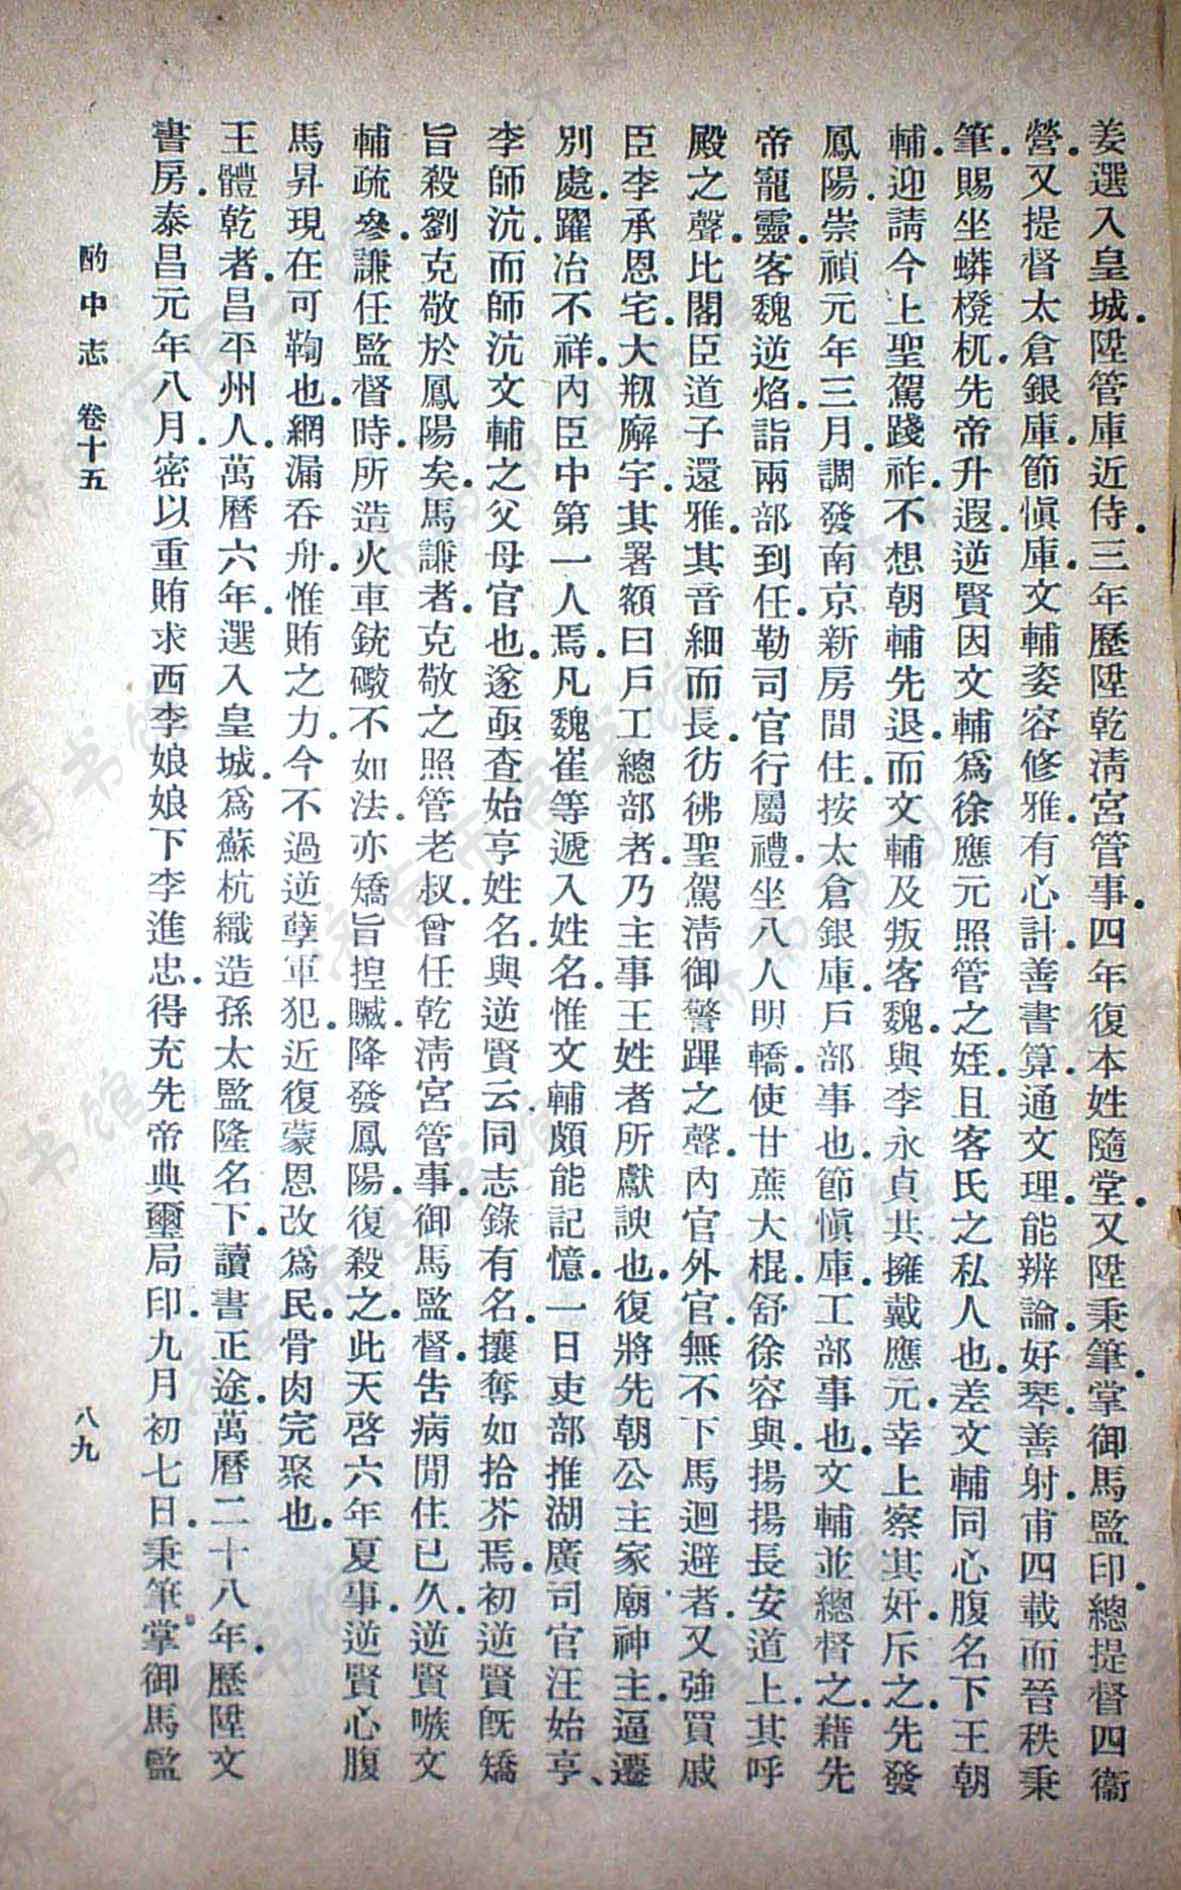 姜選入皇城．陞管庫近侍．三年歷陞乾淸宮管事．四年復本姓隨堂．又陞秉筆．掌御馬監印．總提督四衞
營．又提督太倉銀庫．節愼庫．文輔姿容修雅．有心計．善書算．通文理．能辨論．好琴．善射．甫四載而晉秩秉
筆．賜坐蟒櫈杌．先帝升遐．逆賢因文輔爲徐應元照管之姪．且客氏之私人也．差文輔同心腹名下王朝
輔．迎請今上聖駕踐祚．不想朝輔先退．而文輔及叛客魏．與李永貞共擁戴應元．幸上察其奸．斥之．先發
鳳陽．崇禎元年三月．調發南京新房閒住．按太倉銀庫．戶部事也．節愼庫．工部事也．文輔並總督之．藉先
帝寵靈．客魏逆焰．詣兩部到任．勒司官行屬禮．坐八人明轎．使甘蔗大棍．舒徐容與．揚揚長安道上．其呼
殿之聲．比閣臣道子還雅．其音細而長．彷彿聖駕淸御警蹕之聲．內官外官．無不下馬迴避者．又強買戚
臣李承恩宅．大刱廨宇．其署額曰戶工總部者．乃主事王姓者所獻諛也．復將先朝公主家廟神主．逼遷
別處．躍冶不祥．內臣中第一人焉．凡魏崔等遞入姓名．惟文輔頗能記憶．一日吏部推湖廣司官汪始亨、
李師沆．而師沆文輔之父母官也．遂亟查始亨姓名．與逆賢云．同志錄有名．攘奪如拾芥焉．初逆賢旣矯
旨殺劉克敬於鳳陽矣．馬謙者．克敬之照管老叔．曾任乾淸宮管事．御馬監督．吿病閒住已久．逆賢嗾文
輔疏參．謙任監督時．所造火車銃礮不如法．亦矯旨揑贓．降發鳳陽．復殺之．此天啓六年夏事．逆賢心腹
馬昇現在可鞫也．網漏吞舟．惟賄之力．今不過逆孽軍犯．近復蒙恩改爲民．骨肉完聚也．
王體乾者．昌平州人．萬曆六年．選入皇城．爲蘇杭織造孫太監隆名下．讀書正途．萬曆二十八年．歷陞文
書房．泰昌元年八月．密以重賄求西李娘娘下李進忠．得充先帝典璽局印．九月初七日．秉筆．掌御馬監
酌中志　卷十五
八九